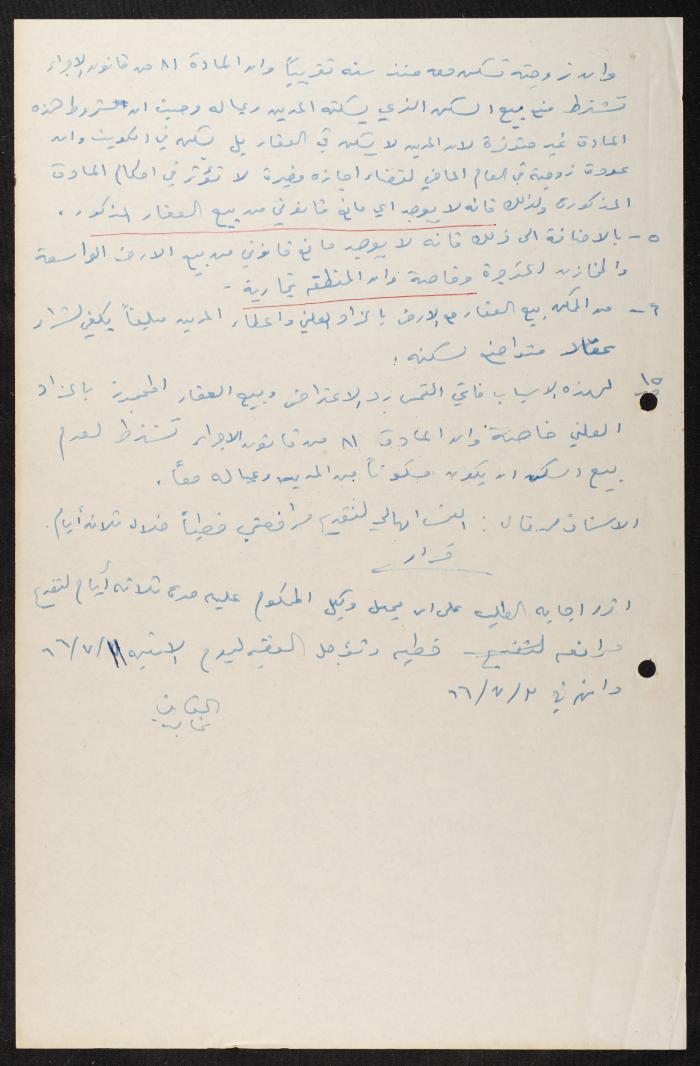 وان زوجته تسكن معه منذ سنه تقريباً وان المادة ٨١ من قانون الاجراء
تشترط منع بيع السكن الذي يسكنه المدين وعياله وحيث ان شروط هذه
المادة غير متوفرة لان المدين لا يسكن في العقار بل يسكن في الكويت وان
عودة زوجية في العام الماضي لقضاء اجازه قصيرة لا تؤثر في احكام المادة
المذكورة ولذلك فانه لا يوجد اي مانع قانوني من بيع العقار المذكور .
٥ - بالاضافة الى ذلك فانه لا يوجد مانع قانوني من بيع الارض الواسعة
والمخازن المؤجرة وخاصة وان المنطقه تجارية -
٦ - من الممكن بيع العقار مع الارض بالمزاد العلني واعطاء المدين مبلغاً يكفي لشراء
عقالا متواضع لسكنه .
لهذه الاسباب فانني التمس رد الاعتراض وبيع العقار المحجوز بالمزاد
العلني خاصة وان المادة ٨١ من قانون الاجراء تشترط لعدم
بيع السكن ان يكون مسكوناً من المدين وعياله معاً .
الاستاذ قال : التمس امهالي لتقديم مرافعتي خطياً خلال ثلاثة أيام .
قرار
اقرر اجابه الطلب على ان يمهل وكيل المحكوم عليه مدة ثلاثة أيام لتقديم
مرافعه خطيه وتؤجل القضيه ليوم الاثنين ١١/٧/٦٦
وافهم في ٢/٧/٦٦